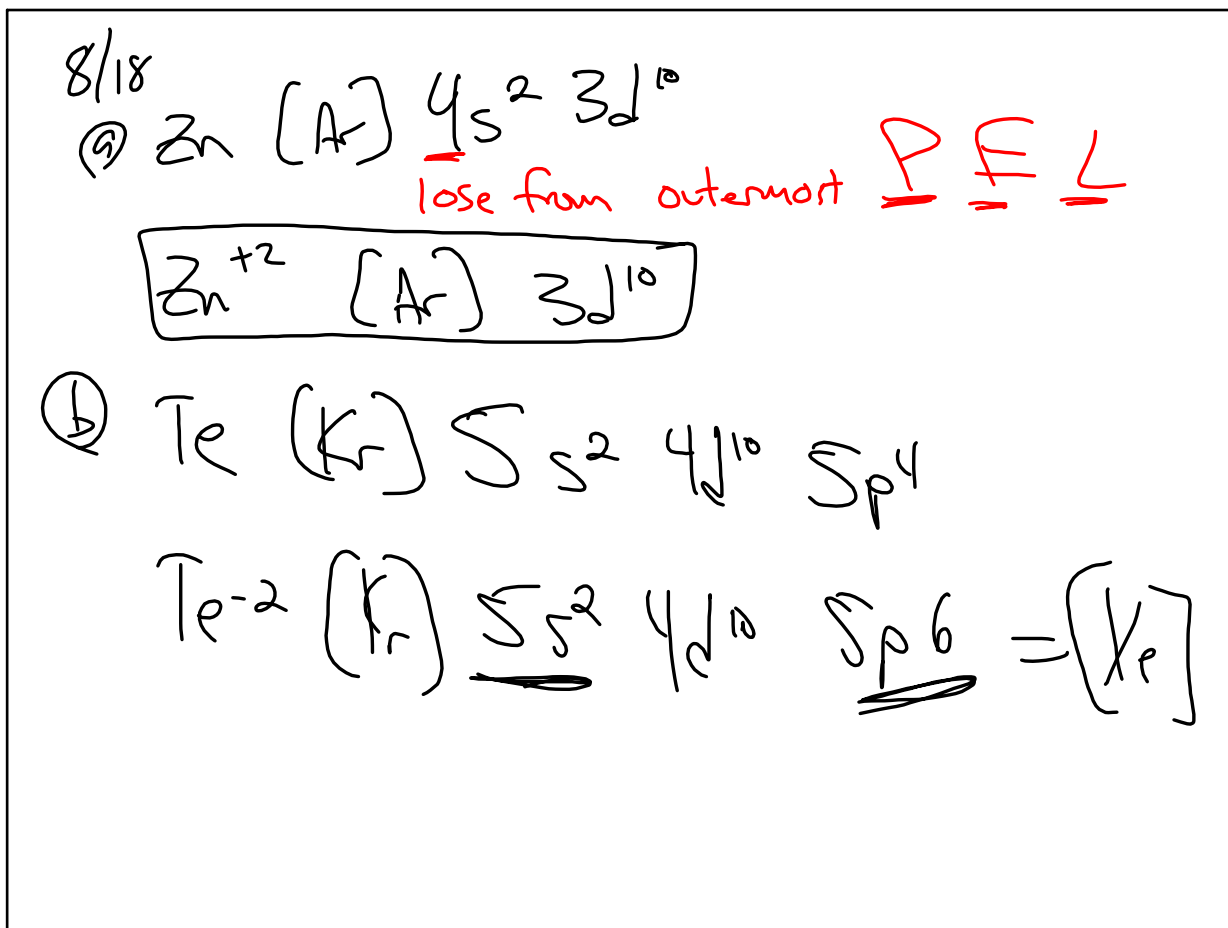 8/18
ⓐ Zn [Ar] 4s² 3d¹⁰
lose from outermost P E L
Zn⁺² [Ar] 3d¹⁰
ⓑ Te [Kr] 5s² 4d¹⁰ 5p⁴
Te⁻² [Kr] 5s² 4d¹⁰ 5p6 = [Xe]